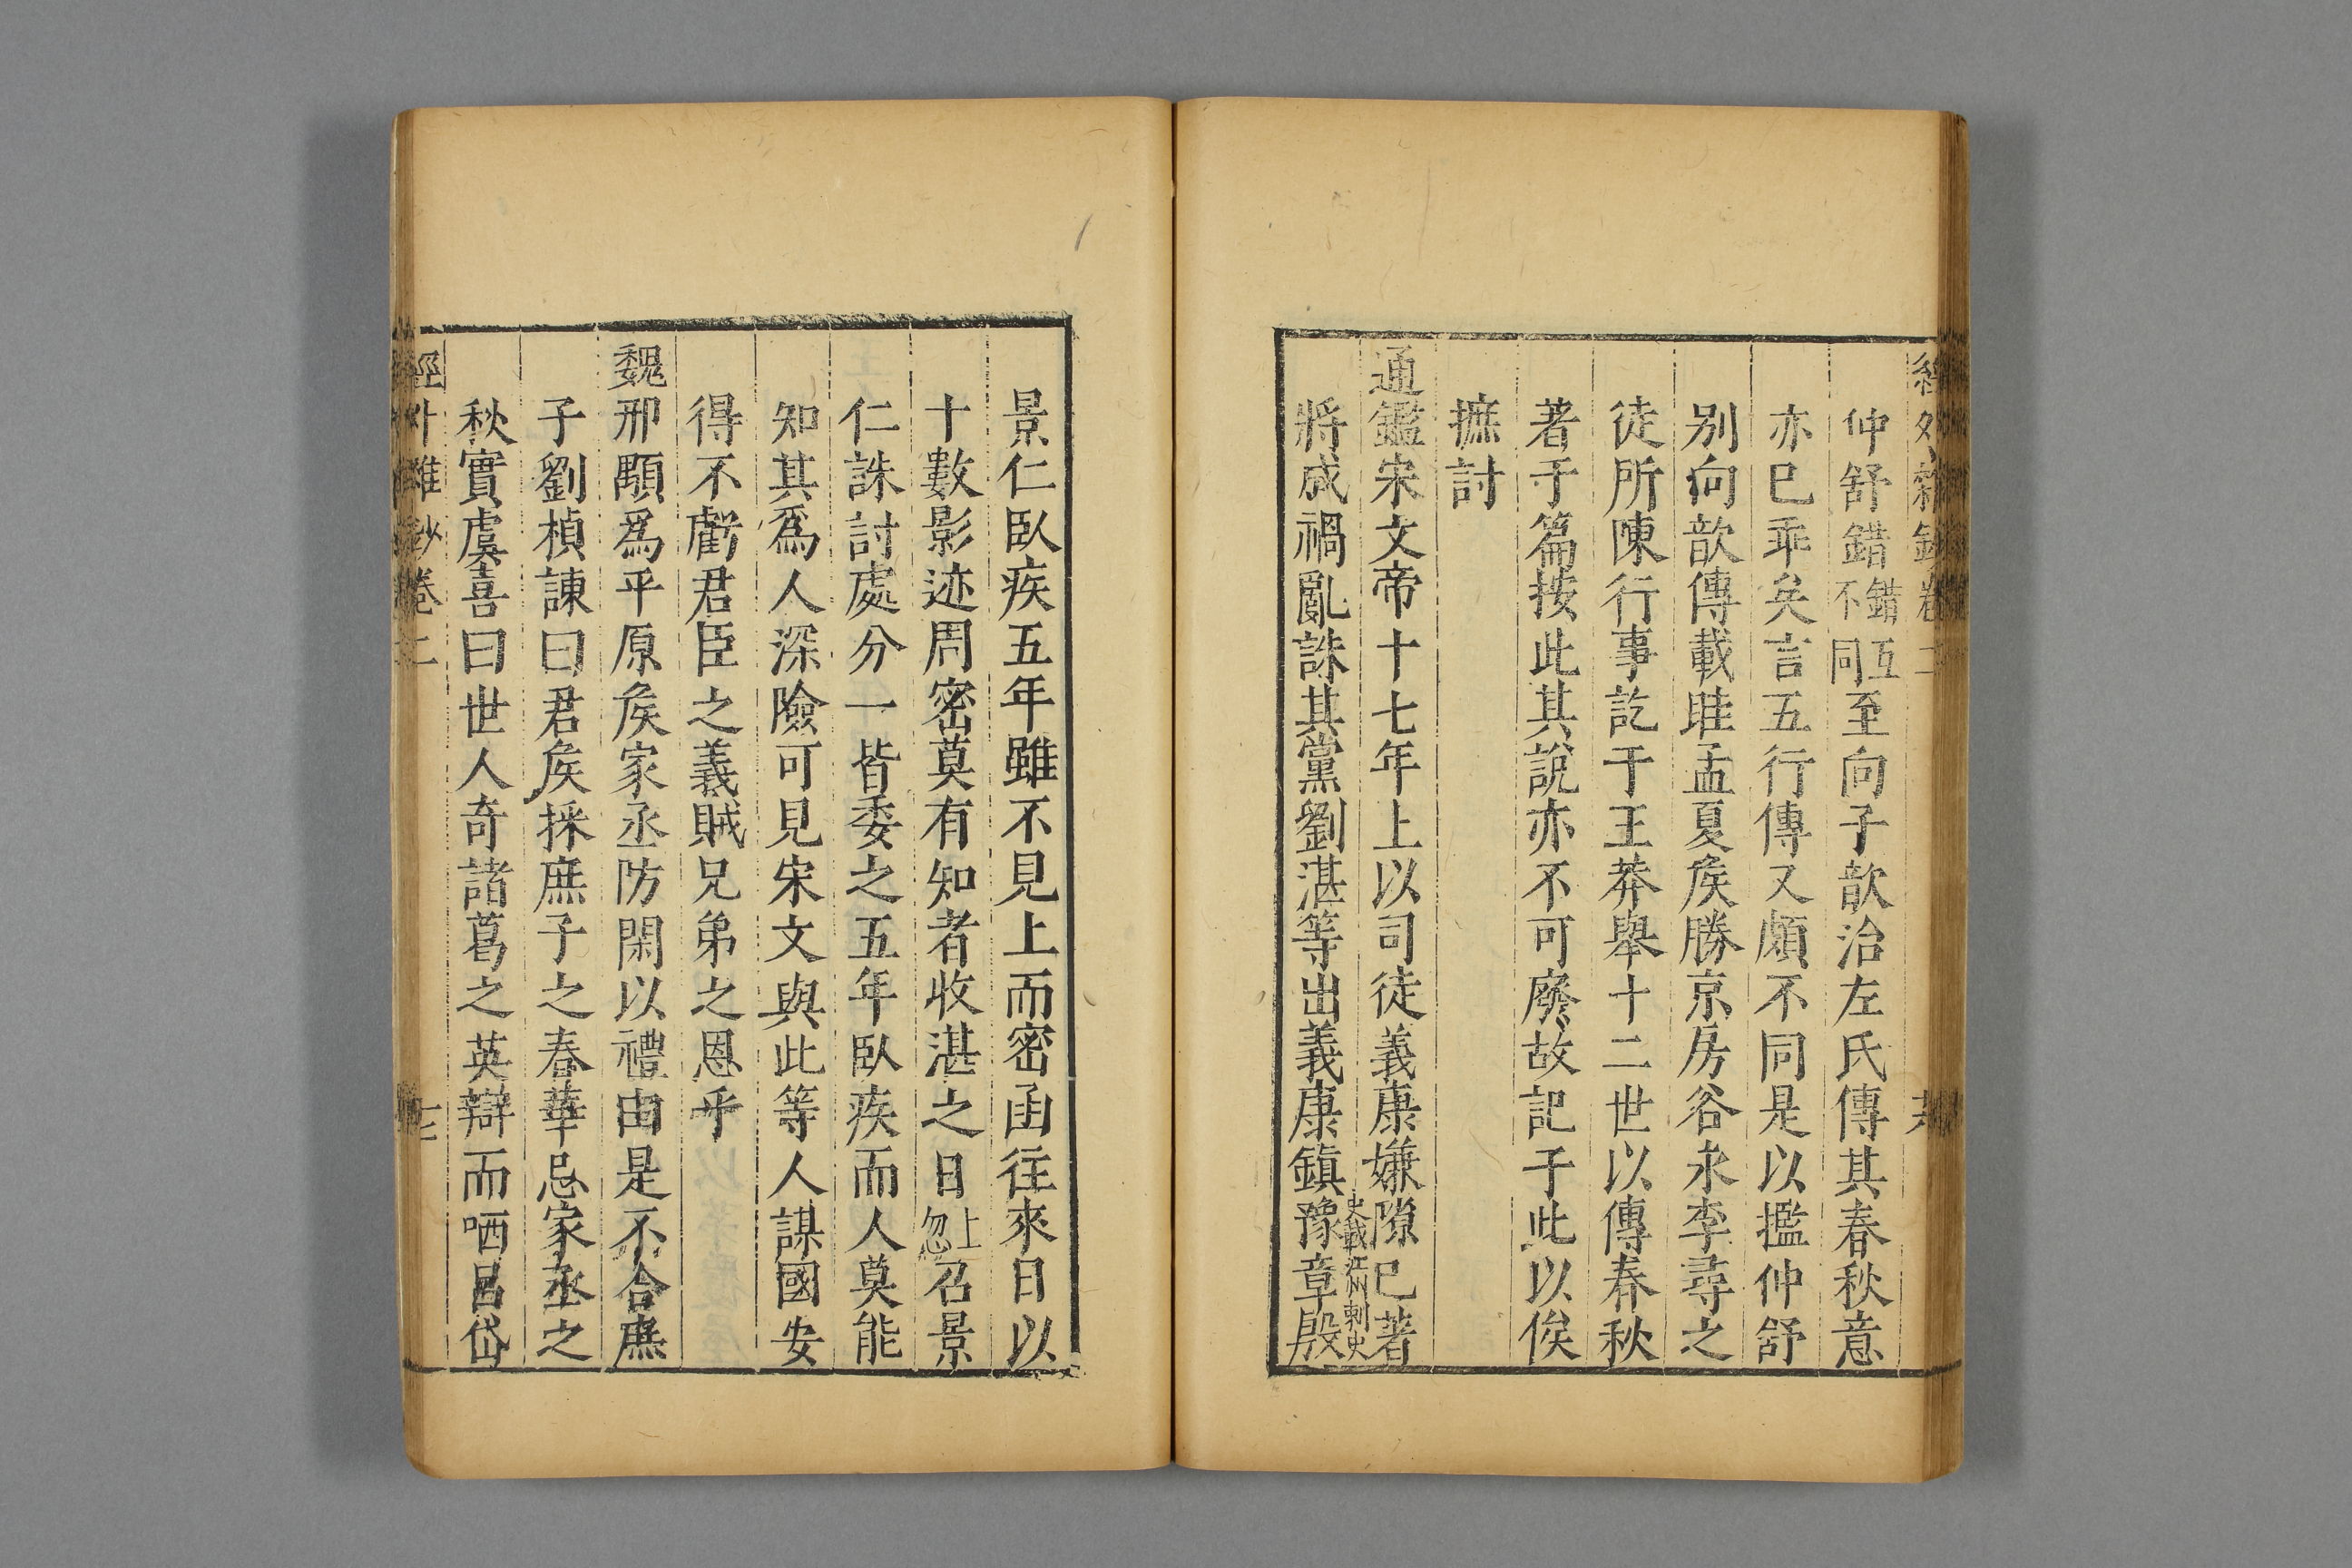 經外雜鈔卷二
仲舒錯錯互不同至向子歆治左氏傳其春秋意
亦巳乖矣言五行傳又頗不同是以㩜仲舒
别向歆傳載眭孟夏矦勝京房谷永李尋之
徒所陳行事訖于王莽舉十二世以傳春秋
著于篇按此其說亦不可廢故記于此以俟
摭討
通鑑宋文帝十七年上以司徒義康嫌隙巳著
將成禍亂誅其黨劉湛等出義康鎮豫章史載江州刺史殷
景仁臥疾五年雖不見上而密函往來日以
十數影迹周密莫有知者收湛之日上忽召景
仁誅討處分一皆委之五年臥疾而人莫能
知其爲人深險可見宋文與此等人謀國安
得不虧君臣之義賊兄弟之恩乎
魏邢顒爲平原矦家丞防閑以禮由是不合庶
子劉楨諫曰君矦採庶子之春華忌家丞之
秋實虞喜曰世人奇諸葛之英辯而哂呂岱
經外雜鈔卷二
七